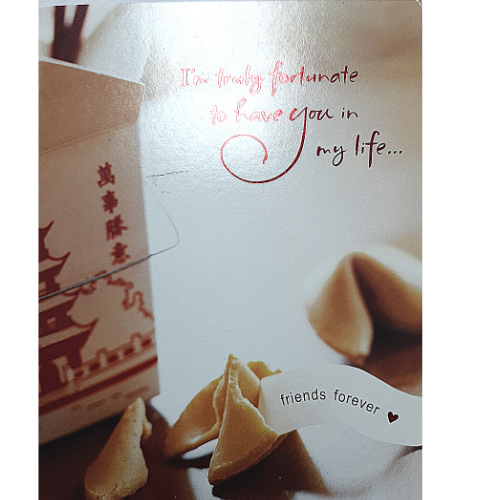 I'm truly fortunate
to have you in
my life...
萬事勝意
friends forever